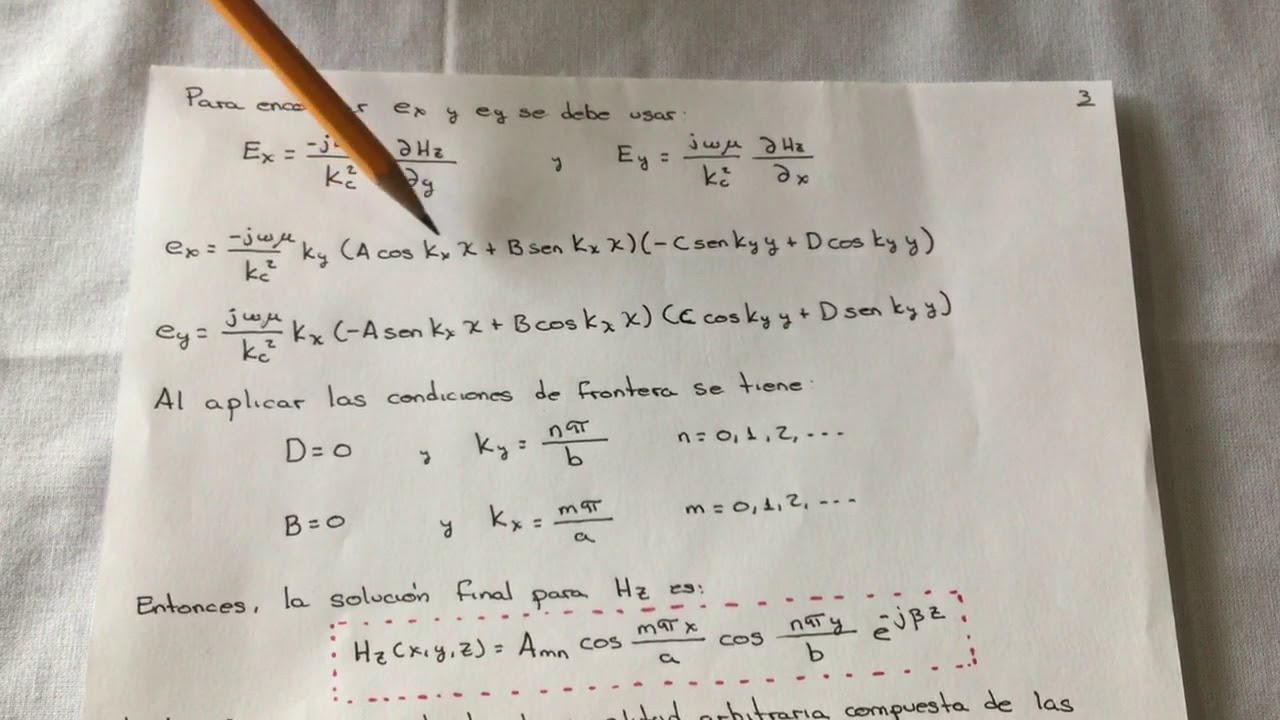 3
Para ex y ey se debe usar:
Ex = -j / kc² ∂Hz / ∂y y Ey = jωμ / kc² ∂Hz / ∂x
ex = -jωμ / kc² ky (A cos kx x + B sen kx x)(-C sen ky y + D cos ky y)
ey = jωμ / kc² kx (-A sen kx x + B cos kx x) (C cos ky y + D sen ky y)
Al aplicar las condiciones de frontera se tiene:
D = 0 y ky = nπ / b n = 0, 1, 2, ...
B = 0 y kx = mπ / a m = 0, 1, 2, ...
Entonces, la solución final para Hz es:
Hz (x, y, z) = Amn cos mπx / a cos nπy / b e^-jβz
arbitraria compuesta de las